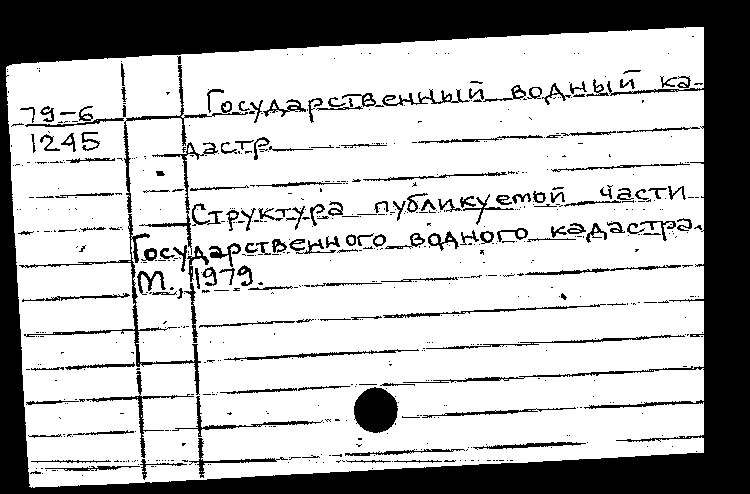 79-6
1245
Государственный водный ка-
дастр.
Структура публикуемой части
Государственного водного кадастра.
М., 1979.